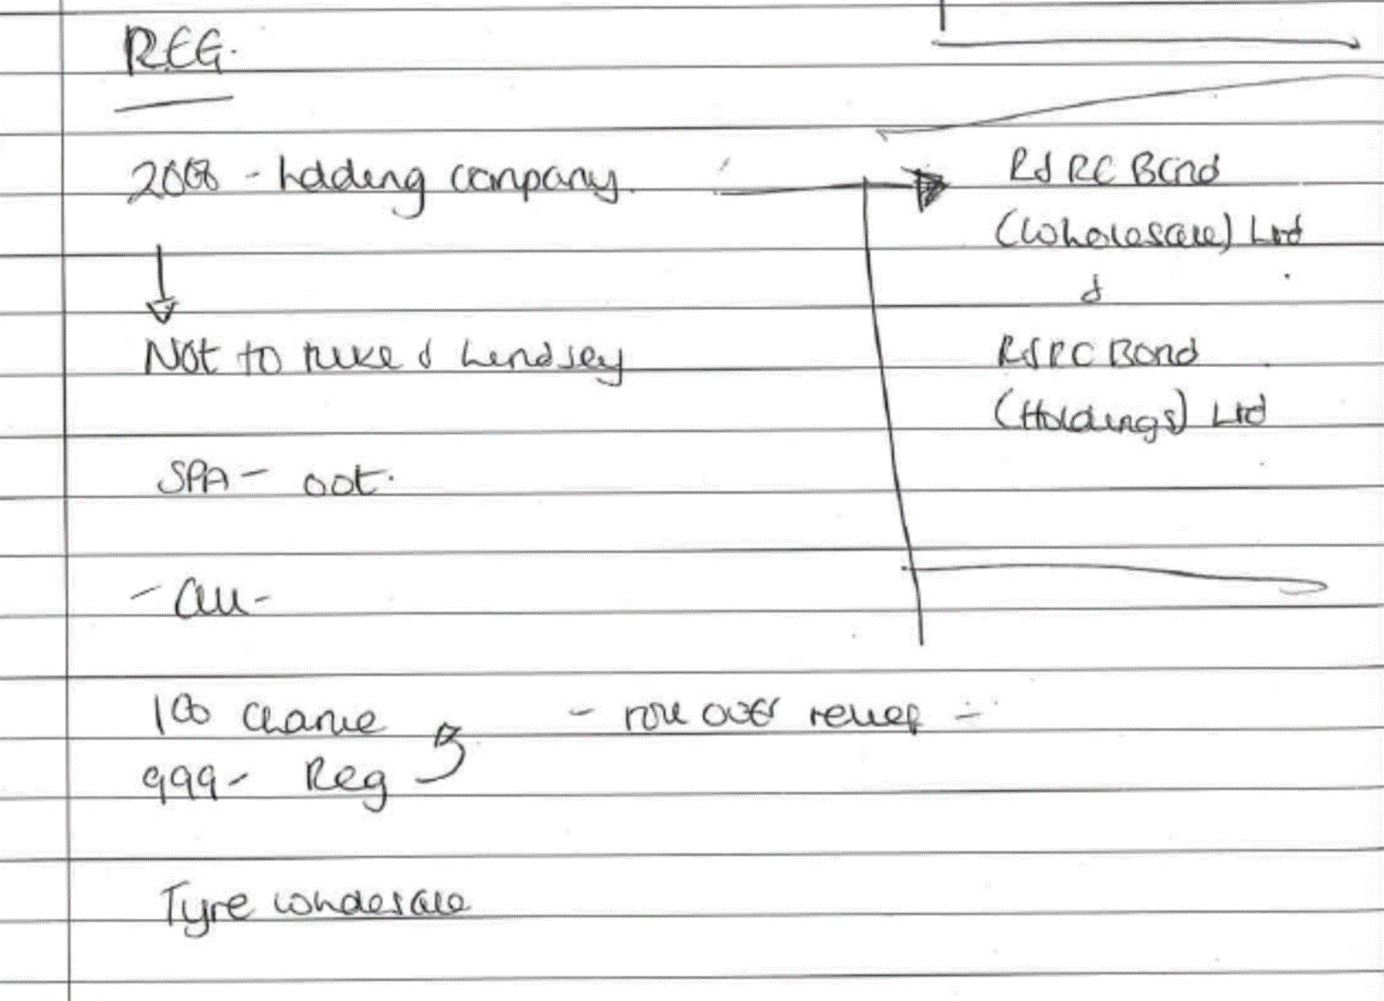 REG.
2008 - holding company.
R & RC Bond
(Wholesale) Ltd
&
R & RC Bond
(Holdings) Ltd
Not to Luke & Lindsey
SPA - oot.
100 Charlie - roll over relief -
999 - Reg
Tyre wholesale